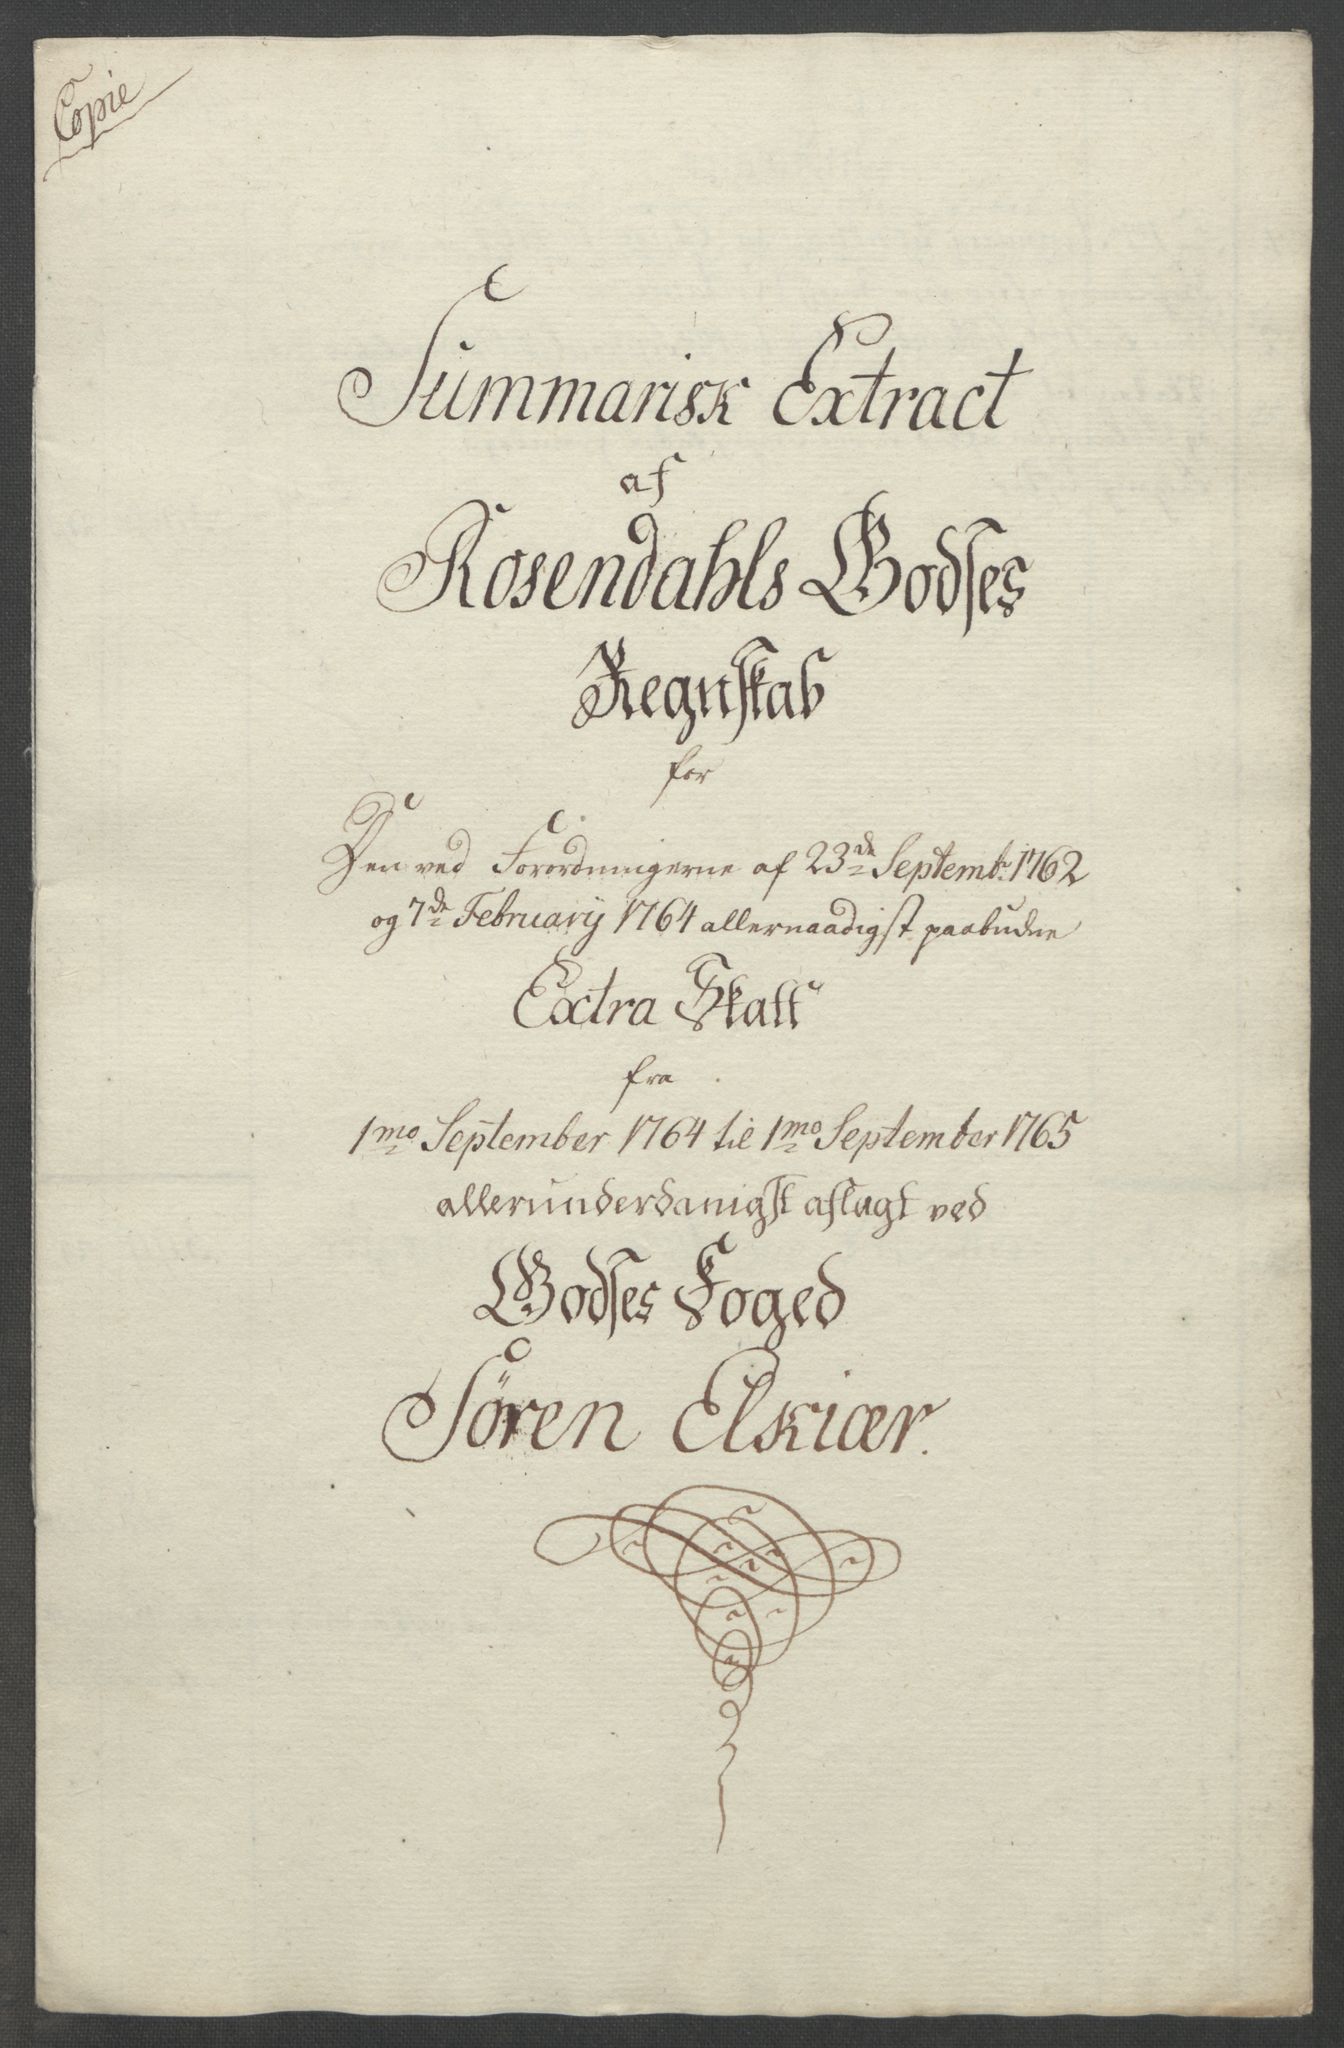 Copie
Summarisk Extract
af
Rosendahls Godses
Regnskab
for
Den ved Forordningerne af 23de Septembr. 1762
og 7de Februarij 1764 allernaadigst paabudne
Extra Skatt
fra
1mo September 1764 til 1mo September 1765
allerunderdanigst aflagt ved
Godses Foged
Sören Elskiær.